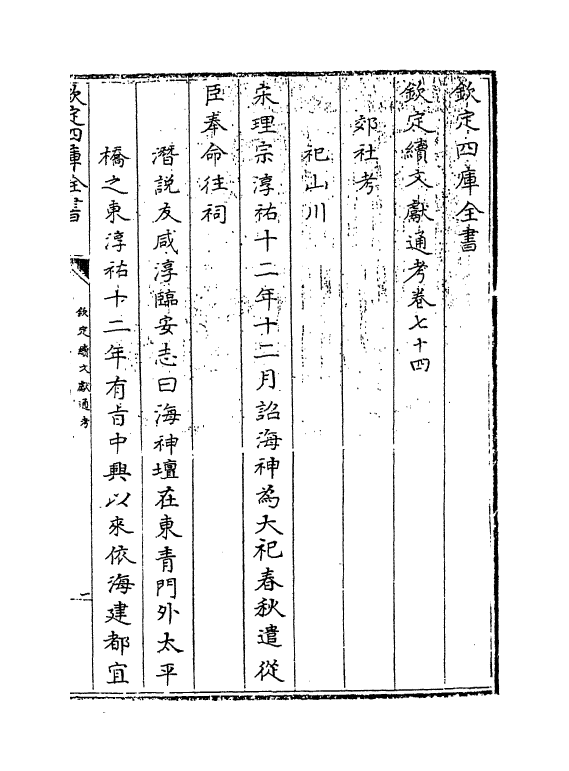 欽定四庫全書
欽定續文獻通考卷七十四
郊社考
祀山川
宋理宗淳祐十二年十二月詔海神為大祀春秋遣從
臣奉命往祠
潛說友咸淳臨安志曰海神壇在東青門外太平
橋之東淳祐十二年有旨中興以來依海建都宜
欽定四庫全書
欽定續文獻通考